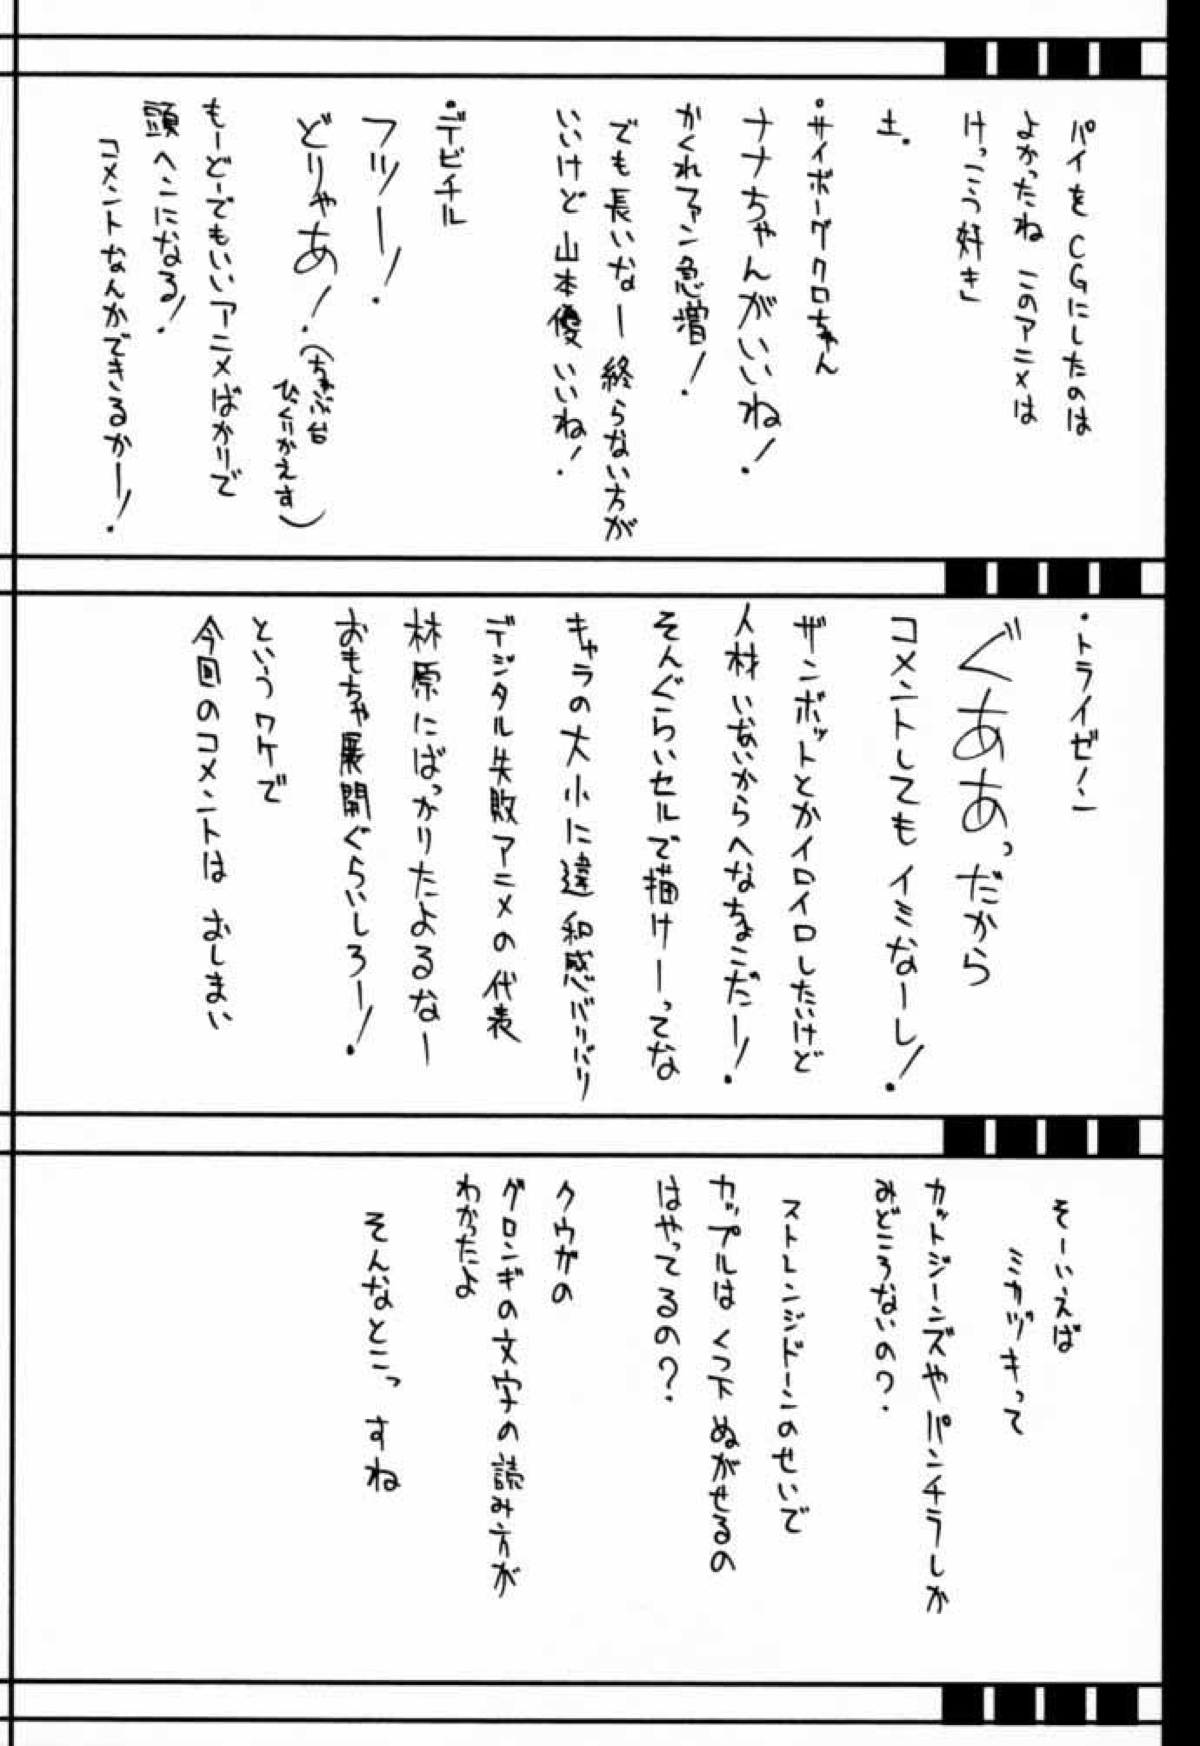 パイをCGにしたのは
よかったね このアニメは
けっこう好き」
土.
・サイボーグクロちゃん
ナナちゃんがいいね!
かくれファン急増!
でも長いなー 終らない方が
いいけど 山本優いいね!
・デビチル
フッー!
どりゃあ!(ちゃぶ台
ひっくりがえす)
もーどーでもいいアニメばかりで
頭ヘンになる!
コメントなんかできるかー!
・トライゼノン
ぐああっだから
コメントしてもイミなーし!
ザンボットとかイロイロしたいけど
人材いないからへなちょこだー!
そんぐらいセルで描けーってな
キャラの大小に違和感バリバリ
デジタル失敗アニメの代表
林原にばっかりたよるなー
おもちゃ展開ぐらいしろー!
というワケで
今回のコメントは おしまい
そーいえば
ミカヅキって
カットジーンズやパンチラしか
みどころないの?
ストレンジドーンのせいで
カップルは くつ下ぬがせるの
はやってるの?
クウガの
グロンギの文字の読み方が
わかったよ
そんなとこっ すね